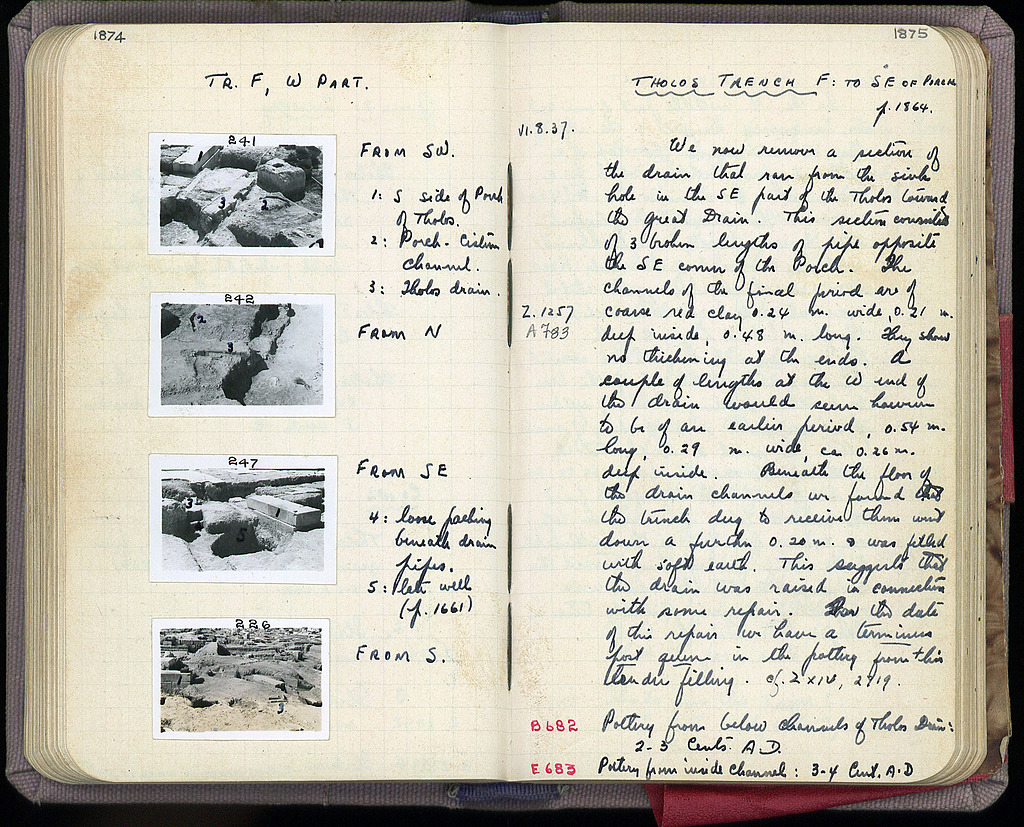 1874
TR. F, W PART.
241
3
2
FROM SW.
1: S side of Porch
of Tholos.
2: Porch-Cistern
channel.
3: Tholos drain.
242
2
3
FROM N
247
3
5
FROM SE
4: loose packing
beneath drain
pipes.
5: late well
(p. 1661)
226
3
FROM S.
1875
THOLOS TRENCH F: TO SE OF PORCH
p. 1864.
VI.8.37.
We now remove a section of
the drain that ran from the sink
hole in the SE part of the Tholos toward
the great Drain. This section consisted
of 3 broken lengths of pipe opposite
the SE corner of the Porch. The
channels of the final period are of
Z.1257
coarse red clay 0.24 m. wide, 0.21 m.
A783
deep inside, 0.48 m. long. They show
no thickening at the ends. A
couple of lengths at the W end of
the drain would seem however
to be of an earlier period, 0.54 m.
long, 0.29 m. wide, ca 0.26 m.
deep inside. Beneath the floor of
the drain channels we found that
the trench dug to receive them went
down a further 0.20 m. & was filled
with soft earth. This suggests that
the drain was raised in connection
with some repair. For the date
of this repair we have a terminus
post quem in the pottery from this
tender filling. cf. Z XIV, 2719.
B682
Pottery from below channels of Tholos Drain:
2-3 Cents. A.D.
E683
Pottery from inside channel: 3-4 Cent. A.D